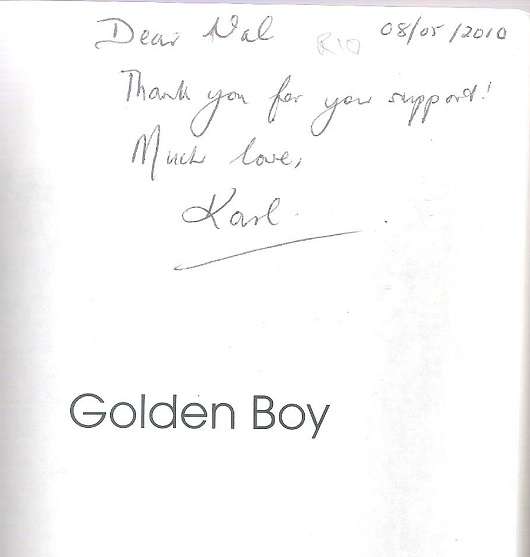 Dear Val R10 08/05/2010
Thank you for your support!
Much love,
Karl
Golden Boy